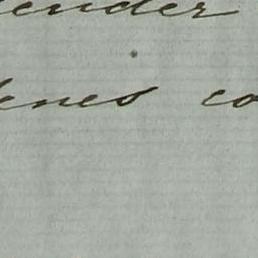 ender
enes co